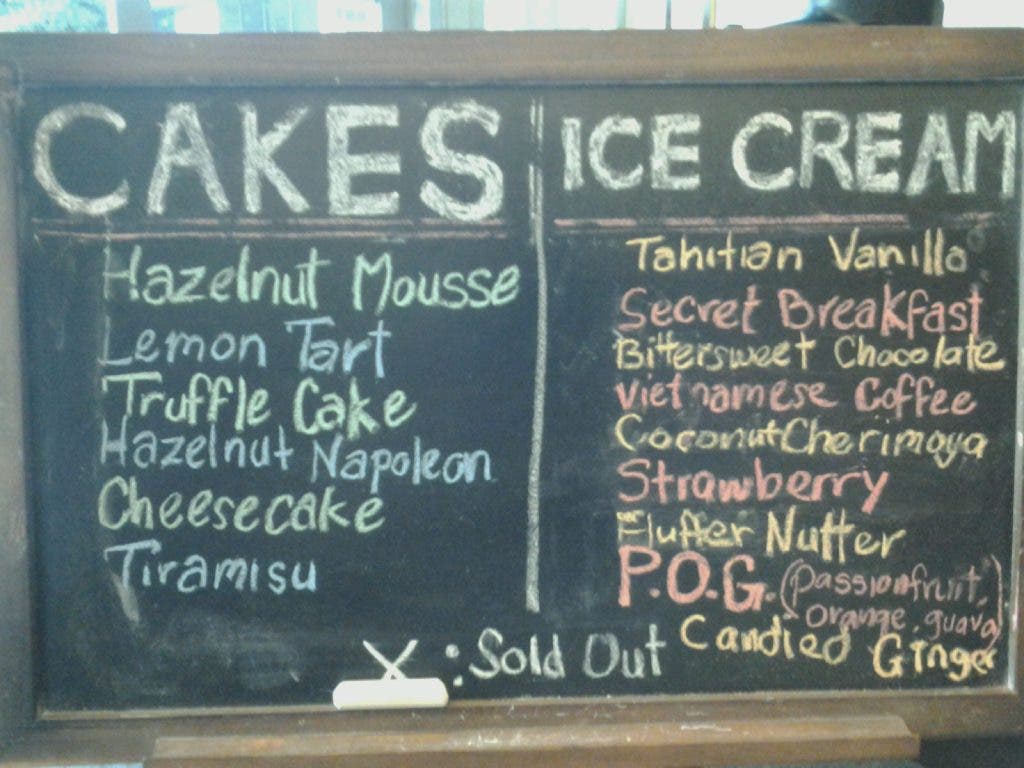 CAKES
Hazelnut Mousse
Lemon Tart
Truffle Cake
Hazelnut Napoleon
Cheesecake
Tiramisu
X : Sold Out
ICE CREAM
Tahitian Vanilla
Secret Breakfast
Bittersweet Chocolate
Vietnamese Coffee
Coconut Cherimoya
Strawberry
Fluffer Nutter
P.O.G. (passionfruit,
orange, guava)
Candied Ginger